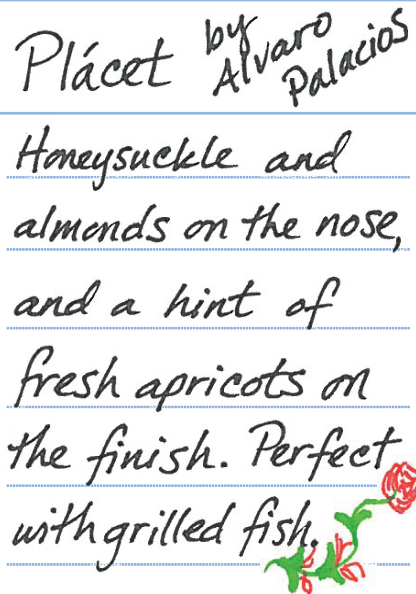 Plácet by Alvaro Palacios
Honeysuckle and
almonds on the nose,
and a hint of
fresh apricots on
the finish. Perfect
with grilled fish.